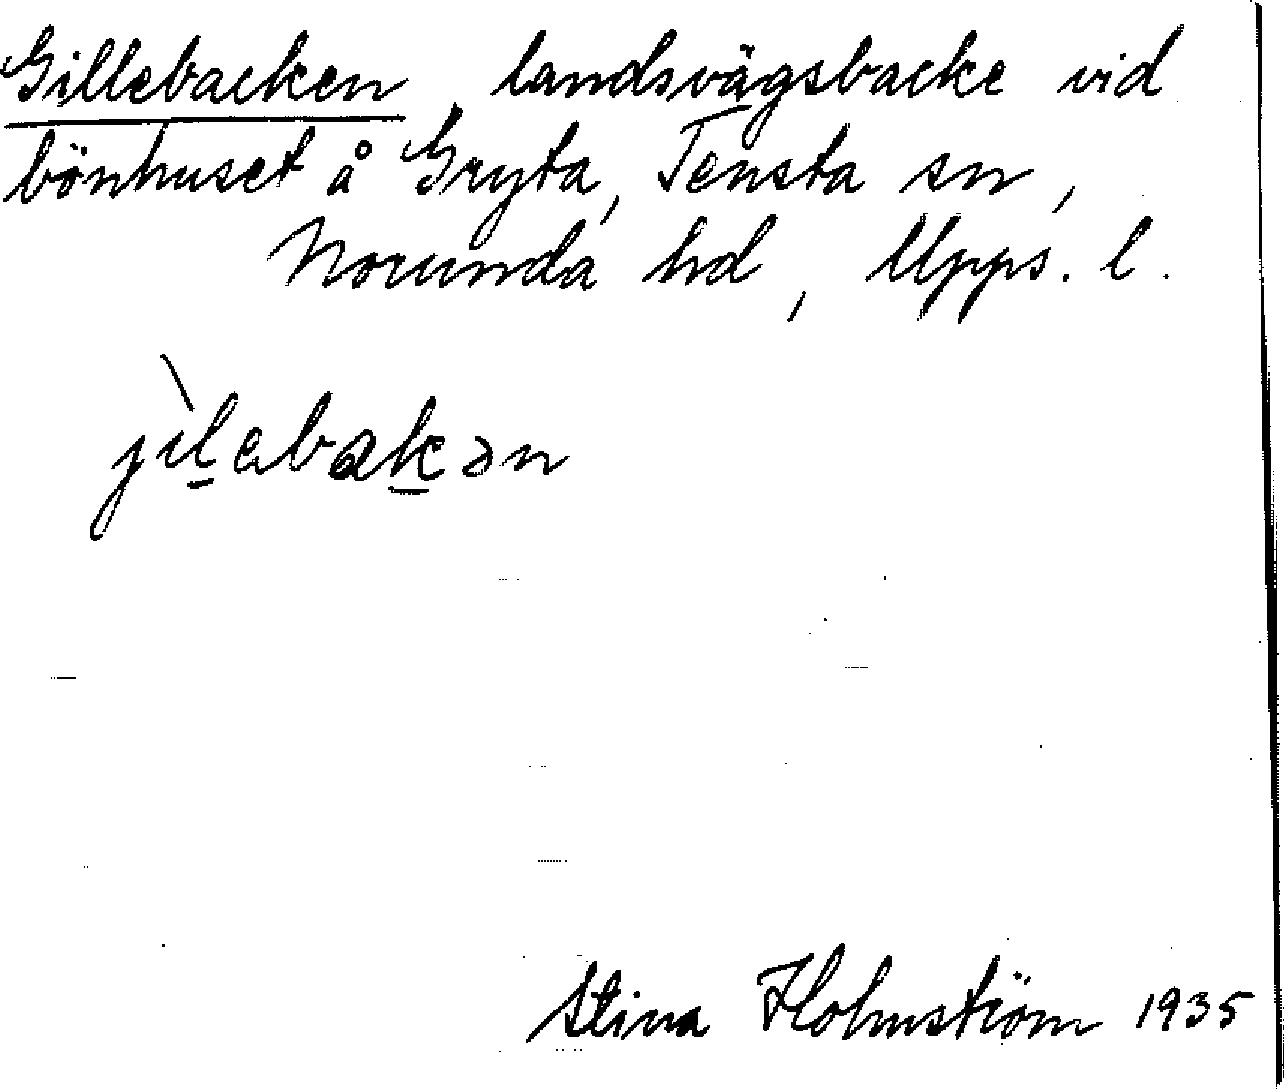 Gillebacken, landsvägsbacke vid
bönhuset å Gryta, Tensta sn,
Norunda hd, Upps. l.
jìl̲ebak̲ən
Stina Holmström 1935